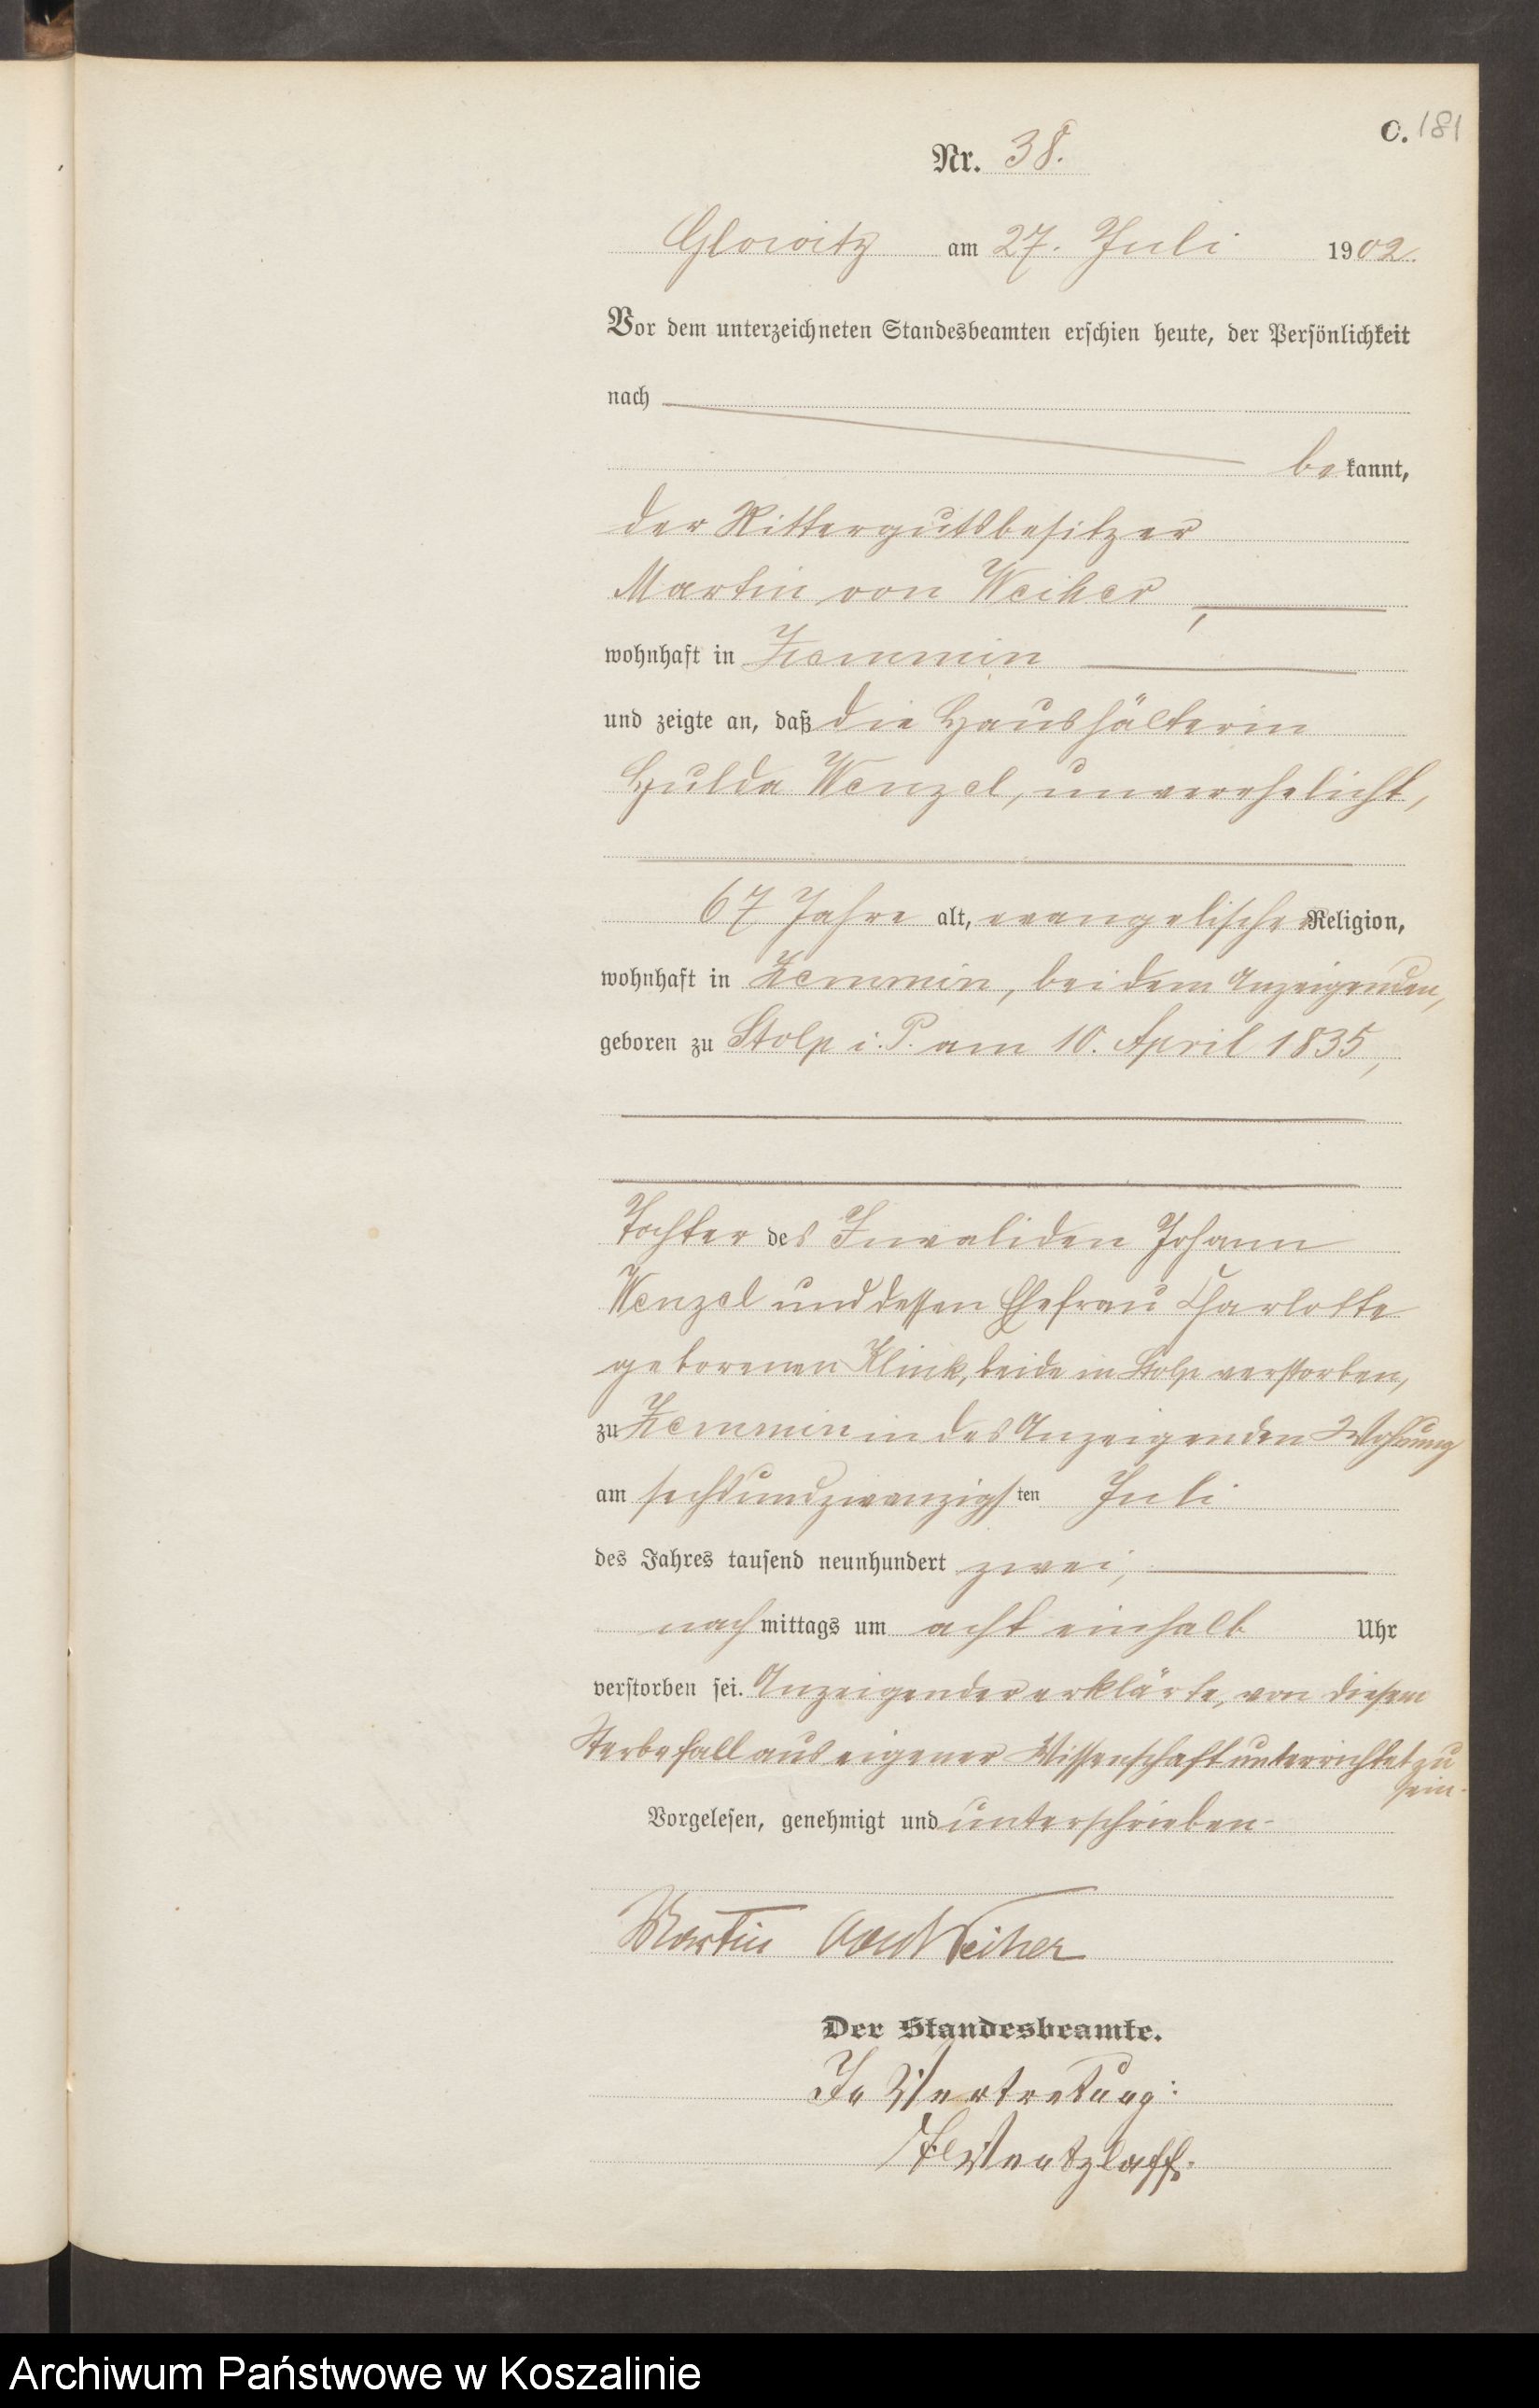 C. 181
Nr. 38.
Glowitz am 27. Juli 1902.
Vor dem unterzeichneten Standesbeamten erschien heute, der Persönlichkeit
nach
bekannt,
der Rittergutsbesitzer
Martin von Weiher,
wohnhaft in Zemmin
und zeigte an, daß die Haushälterin
Hulda Wenzel, unverehelicht,
67 Jahre alt, evangelischer Religion,
wohnhaft in Zemmin, bei dem Anzeigenden,
geboren zu Stolp i. P. am 10. April 1835,
Tochter des Invaliden Johann
Wenzel und dessen Ehefrau Charlotte
geborenen Klink, beide in Stolp verstorben,
zu Zemmin in des Anzeigenden Wohnung
am sechsundzwanzigsten Juli
des Jahres tausend neunhundert zwei,
nachmittags um acht einhalb Uhr
verstorben sei. Anzeigender erklärte, von diesem
Sterbefall aus eigener Wissenschaft unterrichtet zu
sein.
Vorgelesen, genehmigt und unterschrieben.
Martin von Weiher
Der Standesbeamte.
In Vertretung:
Ventzlaff.
Archiwum Państwowe w Koszalinie